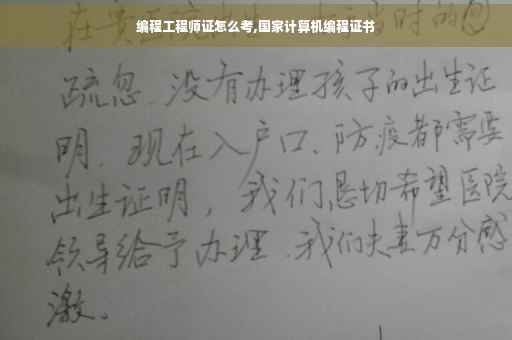 编程工程师证怎么考,国家计算机编程证书
疏忽、没有办理孩子的出生证
明、现在入户口、防疫都需要
出生证明,我们恳切希望医院
领导给予办理、我们夫妻万分感
激。